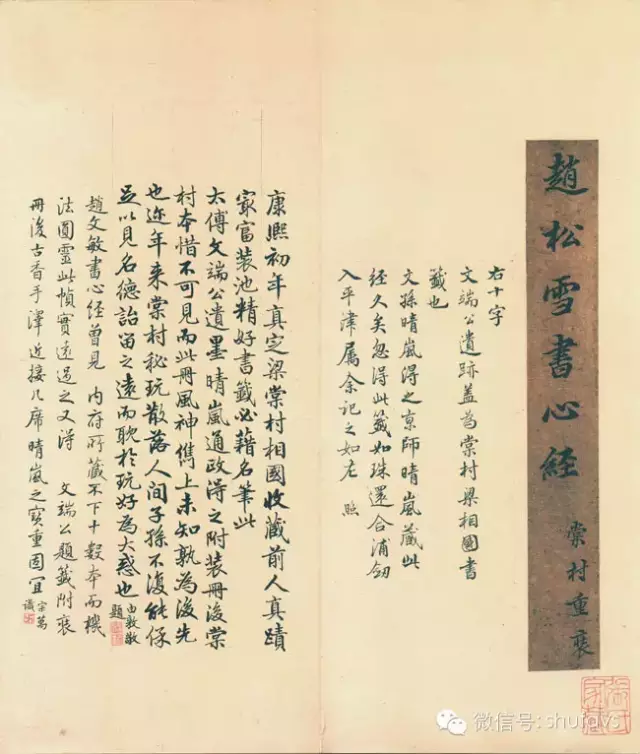 趙松雪書心經
棠村重裝
右十字
文端公遺跡蓋為棠村梁相國書
籤也
文孫晴嵐得之京師晴嵐藏此
經久矣忽得此籤如珠還合浦劒
入平津屬余記之如左 照
康熙初年真定梁棠村相國收藏前人真蹟
冣富裝池精好書籤必藉名筆此
太傅文端公遺墨晴嵐通政得之附裝冊後棠
村本惜不可見而此冊風神儁上未知孰為後先
也近年来棠村秘玩散落人間子孫不復能保
足以見名德詒留之遠而耽於玩好為大惑也
由敦敬
題
趙文敏書心經曾見 内府所藏不下十數本而機
法圓靈此幀實遠過之又得 文端公題籤附裝
冊後古香手澤近接几席晴嵐之寶重固宜
宗萬
識
微信号: shufays